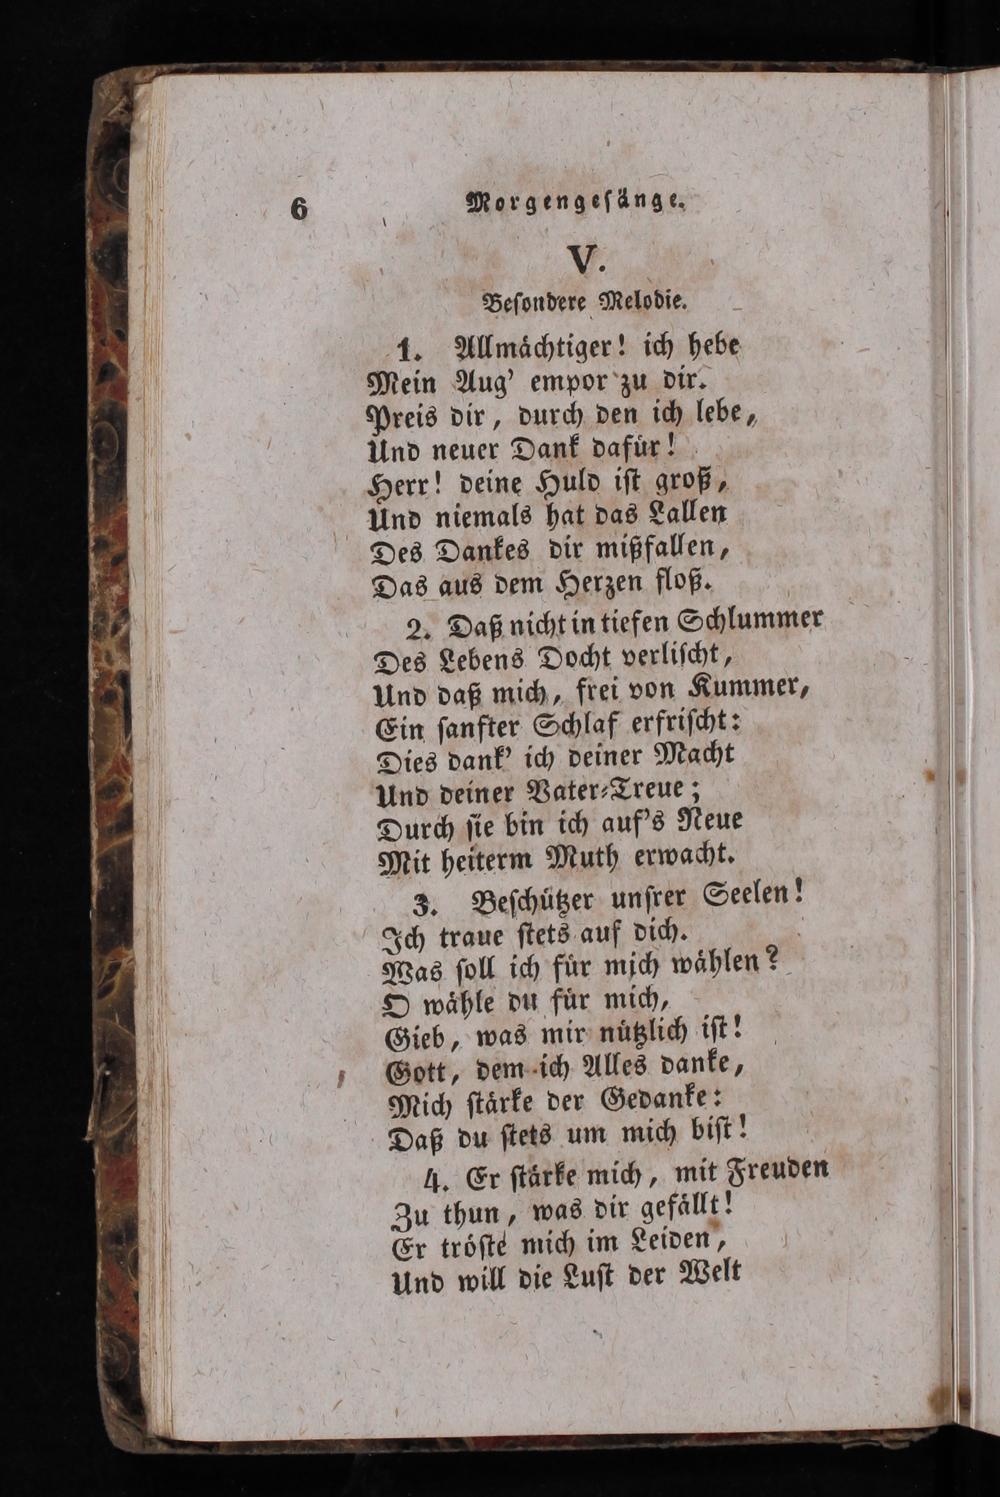 6 Morgengesänge.
V.
Besondere Melodie.
1. Allmächtiger! ich hebe
Mein Aug' empor zu dir.
Preis dir, durch den ich lebe,
Und neuer Dank dafür!
Herr! deine Huld ist groß,
Und niemals hat das Lallen
Des Dankes dir mißfallen,
Das aus dem Herzen floß.
2. Daß nicht in tiefen Schlummer
Des Lebens Docht verlischt,
Und daß mich, frei von Kummer,
Ein sanfter Schlaf erfrischt:
Dies dank' ich deiner Macht
Und deiner Vater-Treue;
Durch sie bin ich auf's Neue
Mit heiterm Muth erwacht.
3. Beschützer unsrer Seelen!
Ich traue stets auf dich.
Was soll ich für mich wählen?
O wähle du für mich,
Gieb, was mir nützlich ist!
Gott, dem ich Alles danke,
Mich stärke der Gedanke:
Daß du stets um mich bist!
4. Er stärke mich, mit Freuden
Zu thun, was dir gefällt!
Er tröste mich im Leiden,
Und will die Lust der Welt